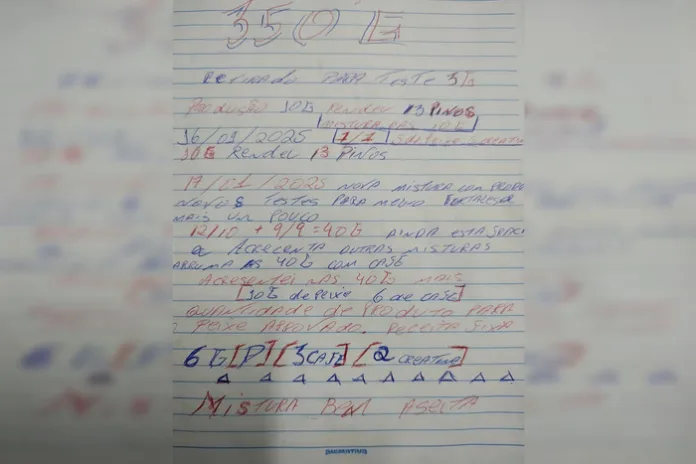 350 G
RETIRADO PARA TESTE 3G
PRODUÇÃO 10G RENDEU 13 PINOS
MISTURA DAS 10 G
16/01/2025 1/1
10G RENDEU 13 PINOS
17/01/2025 NOVA MISTURA COM
NOVOS TESTES PARA MEDIR FORTALESER
MAIS UM POUCO
12/10 + 9/9 = 40G AINDA ESTA
ACRECENTA OUTRAS MISTURAS
ARRUMA AS 40G COM CAFÉ
ACRESENTEI NAS 40G MAIS
[10G de Peixe 6 de CAFÉ]
QUANTIDADE DE PRODUTO PARA
PEIXE APROVADO. RECEITA FIXA
6G [P] [3 CAFE] [2 CREATINA]
MISTURA BEM ACEITA